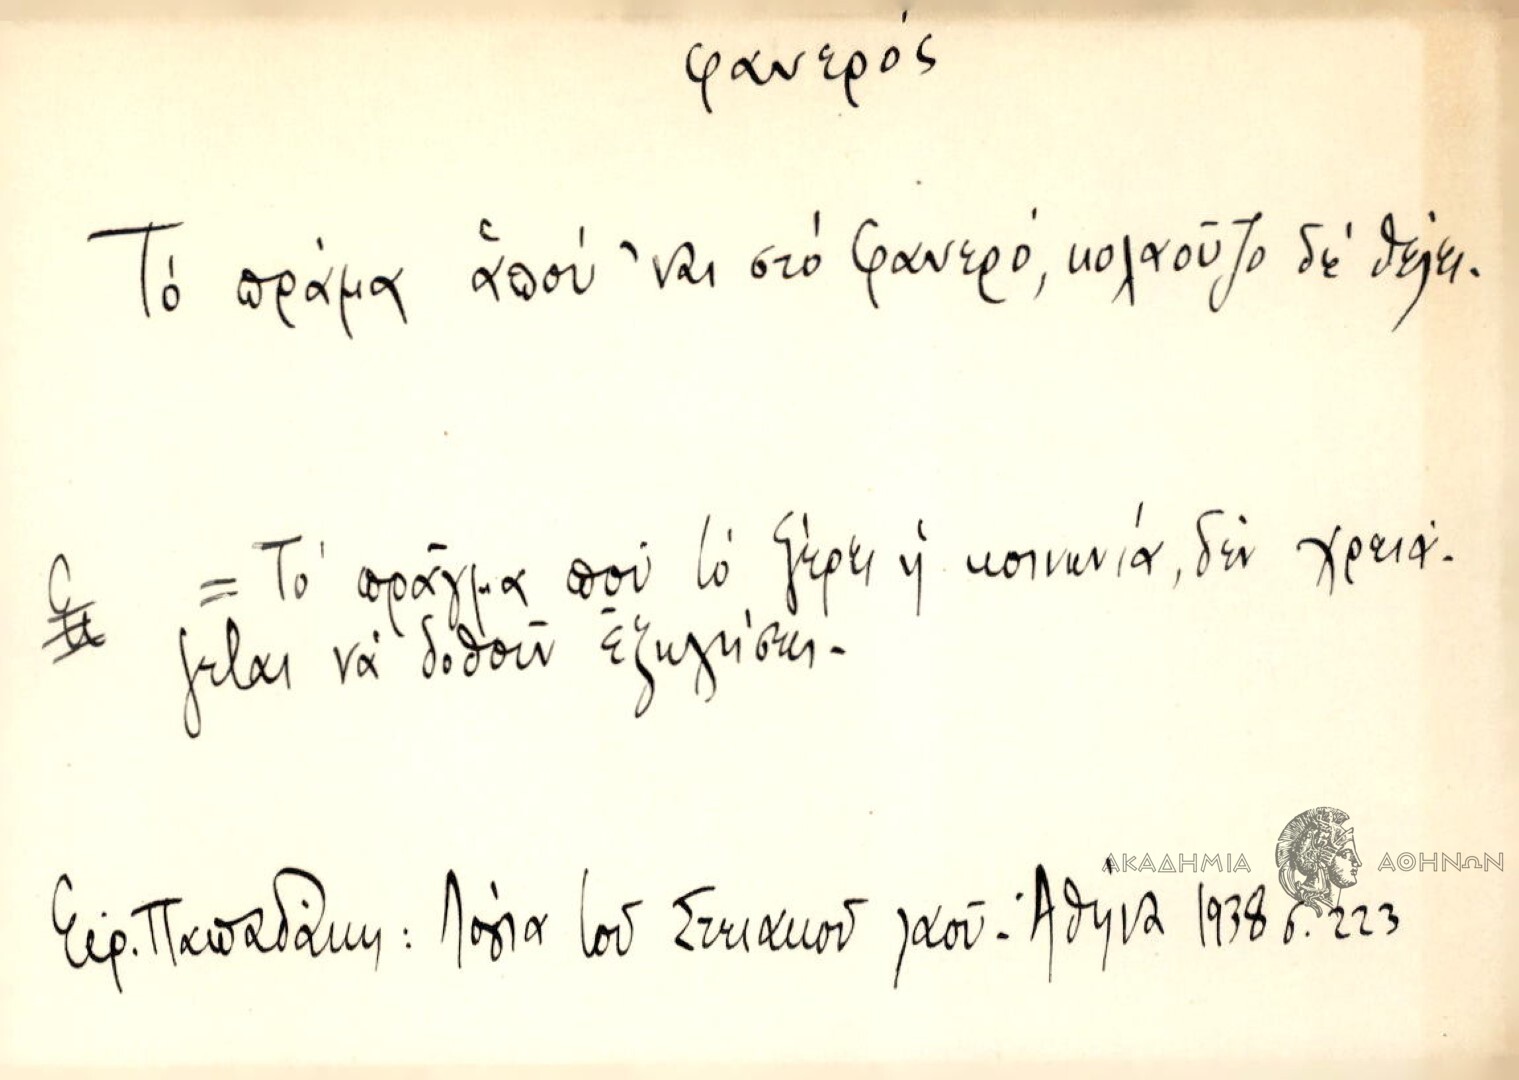 φανερός
Τό πράμα ἁπού 'ναι στό φανερό, κολαοῦζο δέ θέλει.
= Τό πρᾶγμα πού τό ξέρει ἡ κοινωνία, δέν χρειά-
ζεται νά δοθοῦν ἐξηγήσεις.
Εἰρ. Παπαδάκη: Λόγια τοῦ Στειακοῦ λαοῦ - Ἀθήνα 1938 σ. 223
ΑΚΑΔΗΜΙΑ ΑΘΗΝΩΝ